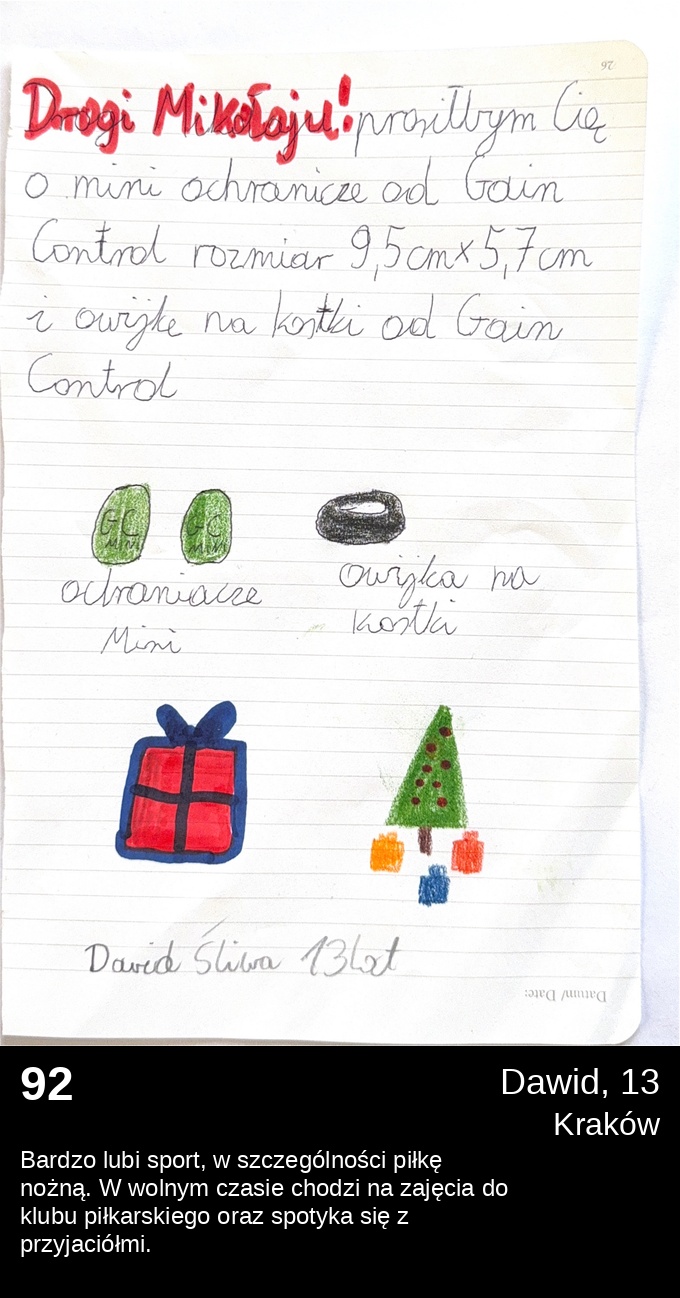 26
Drogi Mikołaju! prosiłbym Cię
o mini ochranicze od Gain
Control rozmiar 9,5cm×5,7cm
i owijkę na kostki od Gain
Control
GC GC
MINI MINI
ochraniacze
Mini
owijka na
kostki
Dawid Śliwa 13 lat
Datum/ Date:
92
Dawid, 13
Kraków
Bardzo lubi sport, w szczególności piłkę
nożną. W wolnym czasie chodzi na zajęcia do
klubu piłkarskiego oraz spotyka się z
przyjaciółmi.